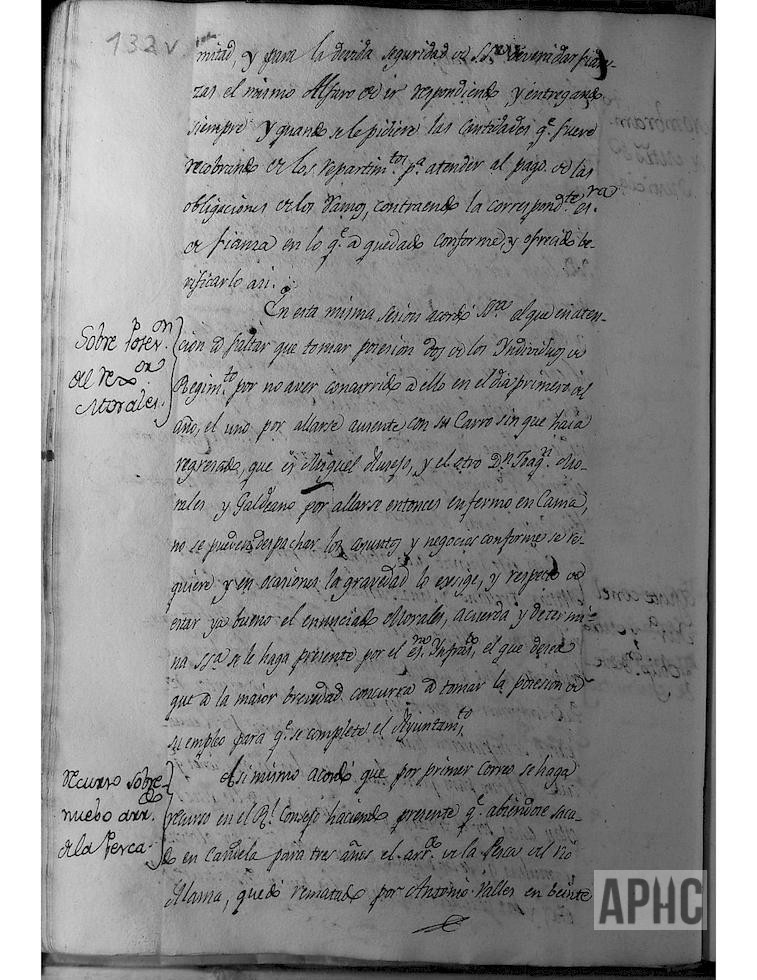 132 v
mitad, y para la devida seguridad de SSª devera dar fian-
zas el mismo Alfaro de ir respondiendo y entregando
siempre y quando se le pidiere las Cantidades q.e fuere
recobrando de los repartim.tos p.a atender al pago de las
obligaciones de los Ramos, contraendo la correspond.te es.ra
de fianza en lo q.e a quedado conforme, y ofrecido be-
rificarlo asi.
En esta misma Sesion acordo SSª el que en aten-
Sobre Poses.on
del rex.or
Morales.
cion a faltar que tomar posesion dos de los Yndividuos de
Regim.to por no aver concurrido a ello en el dia primero del
año, el uno por allarse ausente con su Carro sin que haia
regresado, que es Miguel, y el otro D.n Joaq.n Mo-
rales y Galdeano por allarse entonces enfermo en Cama,
no se pueden despachar los asuntos y negocios conforme se re-
quiere y en ocasiones la gravedad lo exige, y respecto de
estar ya bueno el enunciado Morales, acuerda y determi-
na SSª se le haga presente por el es.no Ynfras.to, el que desea
que a la maior brevedad concurra a tomar la posesion de
su empleo para q.e se complete el Ayuntam.to
Recurso sobre
nuebo arr.do
de la Pesca.
Asi mismo acordó que por primer Correo se haga
recurso en el R.l Consejo haciendo presente q.e abiendose saca-
do en Candela para tres años el arr.do de la Pesca del rio
Alama, quedó rematado por Antonio Valles en beinte
APHC